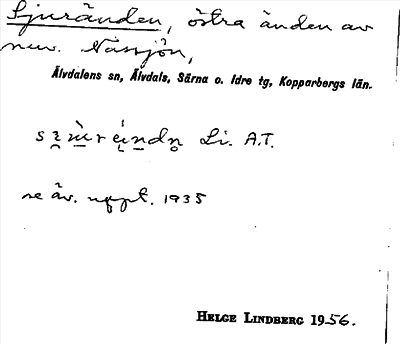 Sjuränden, östra änden av
nuv. Nässjön,
Älvdalens sn, Älvdals, Särna o. Idre tg, Kopparbergs län.
Li. A.T.
se äv. uppt. 1935
HELGE LINDBERG 1956.